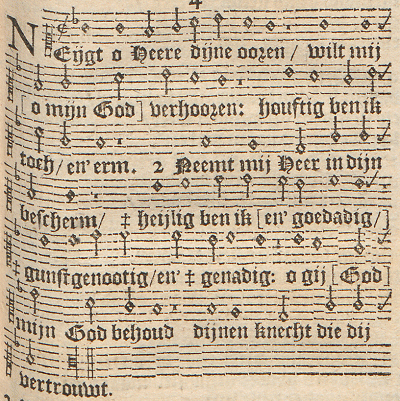 4
NEijgt o Heere dijne ooren / wilt mij
[ o mijn God ] verhooren: houftig ben ik
toch / en' erm. 2 Neemt mij Heer in dijn
bescherm / ‡ heijlig ben ik [ en' goedadig / ]
‡ gunstgenootig / en' ‡ genadig: o gij [ God ]
mijn God behoud dijnen knecht die dij
vertrouwt.